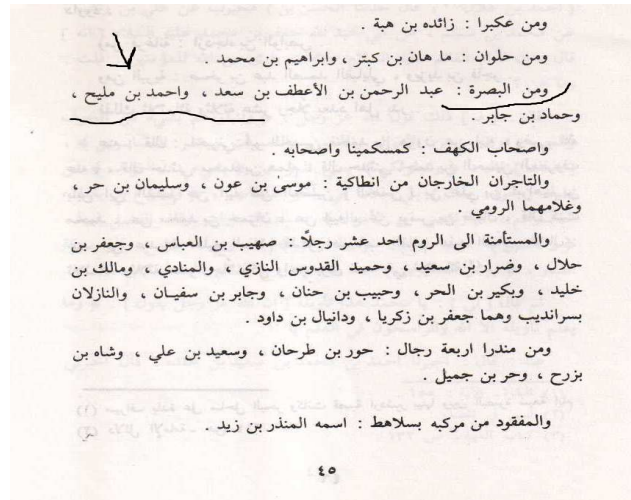 ومن عكبرا : زائده بن هبة .
ومن حلوان : ما هان بن كبتر ، وابراهيم بن محمد .
ومن البصرة : عبد الرحمن بن الأعطف بن سعد ، واحمد بن مليح ،
وحماد بن جابر .
واصحاب الكهف : كمسكمينا واصحابه .
والتاجران الخارجان من انطاكية : موسىٰ بن عون ، وسليمان بن حر ،
وغلامهما الرومي .
والمستأمنة الى الروم احد عشر رجلًا : صهيب بن العباس ، وجعفر بن
حلال ، وضرار بن سعيد ، وحميد القدوس النازي ، والمنادي ، ومالك بن
خليد ، وبكير بن الحر ، وحبيب بن حنان ، وجابر بن سفيان ، والنازلان
بسرانديب وهما جعفر بن زكريا ، ودانيال بن داود .
ومن مندرا اربعة رجال : حور بن طرحان ، وسعيد بن علي ، وشاه بن
بزرح ، وحر بن جميل .
والمفقود من مركبه بسلاهط : اسمه المنذر بن زيد .
٤٥